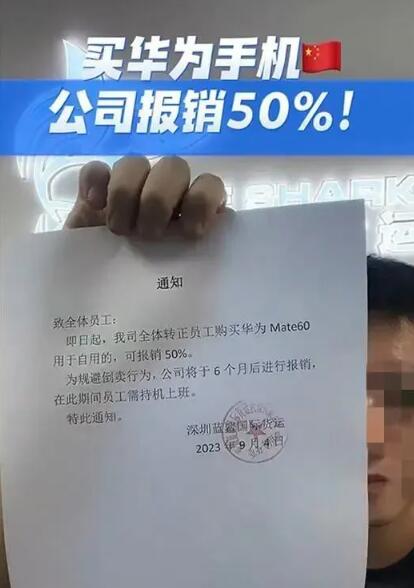 买华为手机🇨🇳
公司报销50%!
SHARK
运
通知
致全体员工:
即日起，我司全体转正员工购买华为 Mate60
用于自用的，可报销 50%。
为规避倒卖行为，公司将于 6 个月后进行报销，
在此期间员工需持机上班。
特此通知。
深圳蓝鲨国际货运
2023 年 9 月 4 日